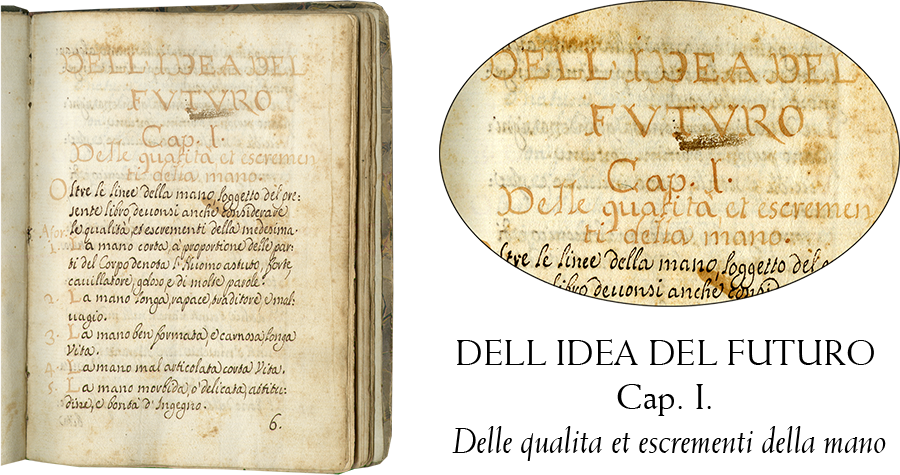 DELL IDEA DEL
FUTURO
Cap. I.
Delle qualita et escremen
ti della mano.
Oltre le linee della mano, soggetto del pre:
sente libro deuonsi anche considerare
le qualità, et escrementi della medesima.
Afor:
1. La mano corta, à proportione delle par:
ti del Corpo denota l'Huomo astuto, forte
cauillatore, goloso, e di molte parole.
2. La mano longa, rapace, traditore, e mal:
uagio.
3. La mano ben formata, e carnosa, longa
Vita.
4. La mano mal articolata corta Vita.
5. La mano morbida, o' delicata, attitu:
dine, e bontà d'Ingegno.
6.
DELL IDEA DEL
FUTURO
Cap. I.
Delle qualita et escremen
ti della mano.
ltre le linee della mano, soggetto del
libro deuonsi anche consid
DELL IDEA DEL FUTURO
Cap. I.
Delle qualita et escrementi della mano